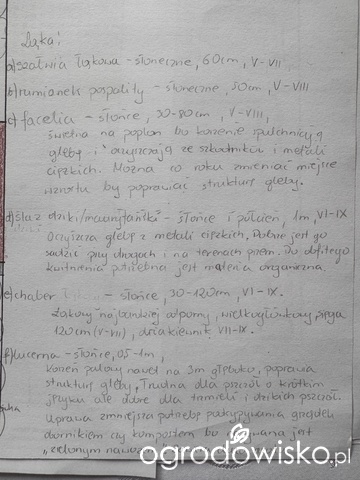 Łąka!
a) szałwia łąkowa - słonecznie, 60cm, V-VII
b) rumianek pospolity - słonecznie, 50cm, V-VIII
c) facelia - słońce, 30-80cm, V-VIII,
świetna na poplon bo korzenie spulchniają
glebę i oczyszczają ze szkodników i metali
ciężkich. Można co roku zmieniać miejsce
wzrostu by poprawiać strukturę gleby.
d) ślaz dziki/mauretański - słońce i półcień, 1m, VI-IX
Oczyszcza glebę z metali ciężkich. Dobrze jest go
sadzić przy drogach i na terenach przem. Do obfitego
kwitnienia potrzebna jest materia organiczna.
e) chaber - słońce, 30-120cm, VI-IX.
Łąkowy najbardziej odporny, wielkogłówkowy sięga
120cm (V-VII), driakiewnik VII-IX.
f) lucerna - słońce, 0,5-1m,
Korzeń palowy nawet na 3m głęboko, poprawia
strukturę gleby. Trudna dla pszczół o krótkim
języku ale dobre dla trzmieli i dzikich pszczół.
Uprawa zmniejsza potrzebę przykrywania grządek
obornikiem czy kompostem bo jest
"zielonym nawozem"
ogrodowisko.pl